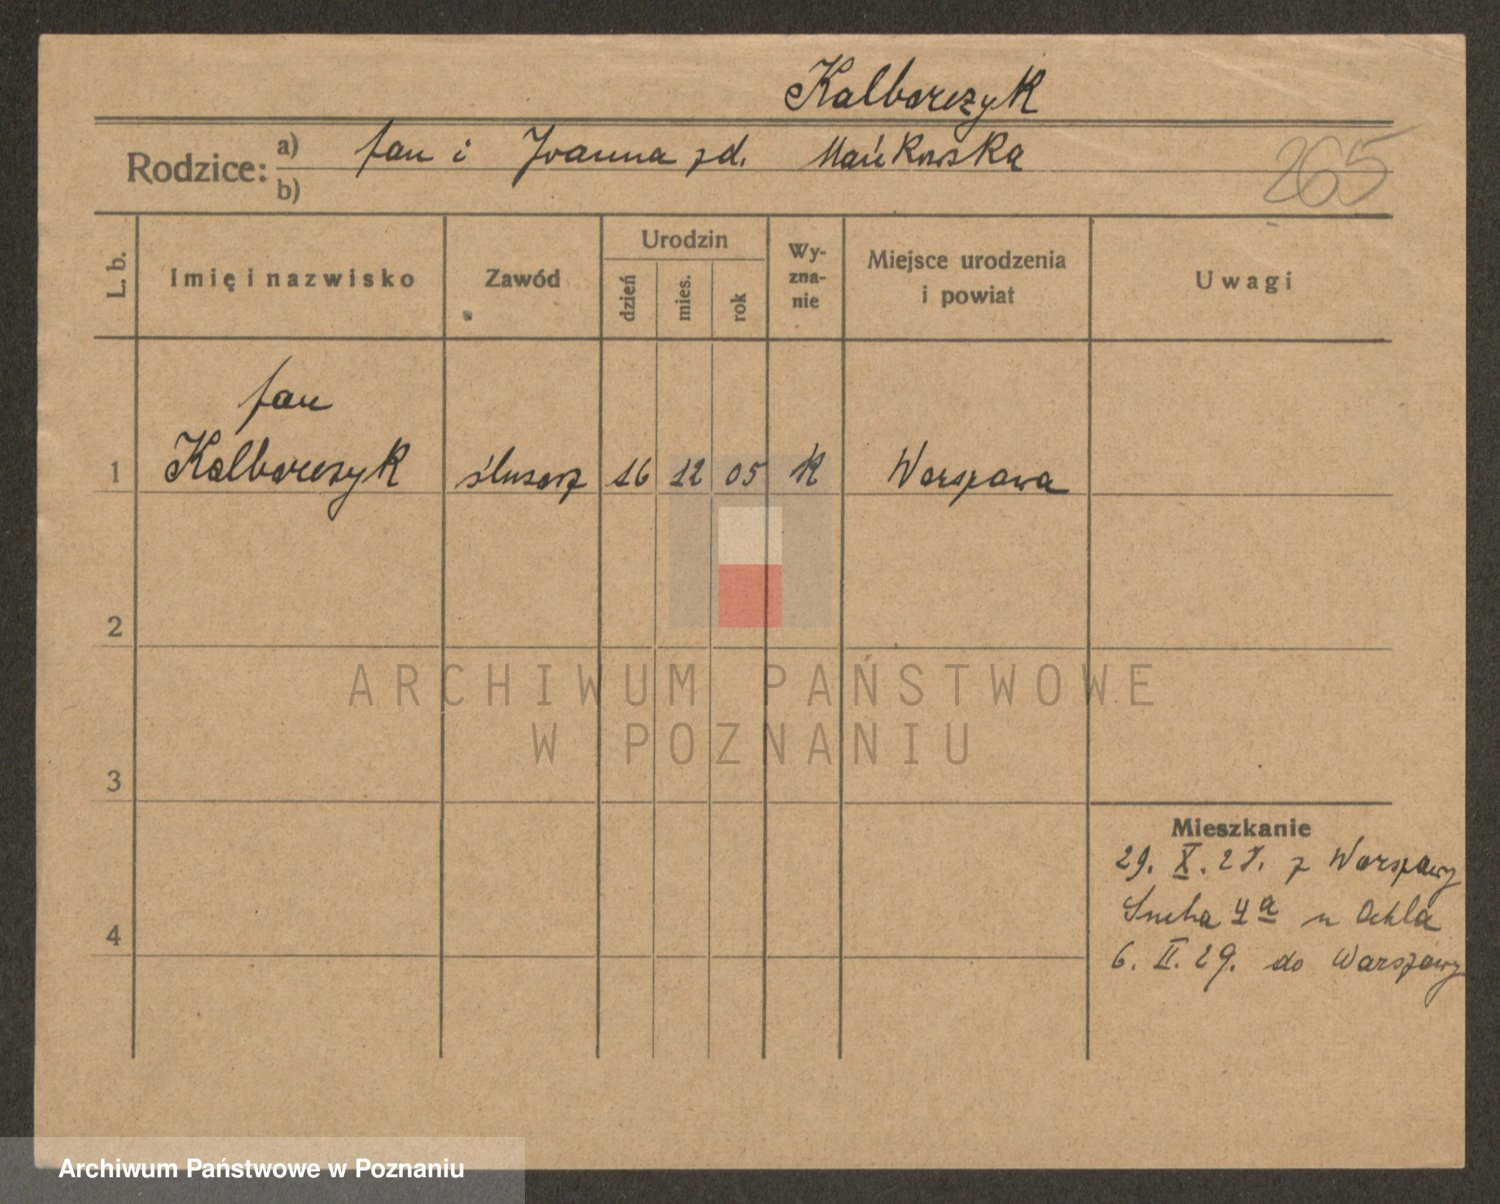 Kalbarczyk
Rodzice: a) Jan i Joanna zd. Mańkowska
b)
265
L. b.
Imię i nazwisko
Zawód
Urodzin
dzień
mies.
rok
Wy-
zna-
nie
Miejsce urodzenia
i powiat
Uwagi
Jan
1 Kalbarczyk ślusarz 16 12 05 K Warszawa
2
3
4
ARCHIWUM PAŃSTWOWE
W POZNANIU
Mieszkanie
29. X. 27. z Warszawy
Sucha 4a u
6. II. 29. do Warszawy
Archiwum Państwowe w Poznaniu